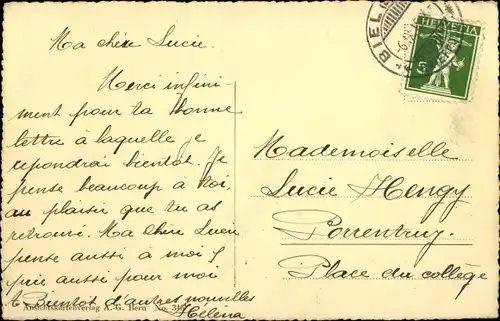 Ma chère Lucie.
Merci infini-
ment pour ta bonne
lettre à laquelle je
repondrai bientot. Je
pense beaucoup à toi,
au plaisir que tu as
retrouvé. Ma chère Lucie
pense aussi à moi &
prie aussi pour moi
Bientot d'autres nouvelles
Helena
Ansichtskartenverlag A.-G. Bern No.
Mademoiselle
Lucie Hengy
Porrentruy.
Place du collège
HELVETIA
5
BIEL